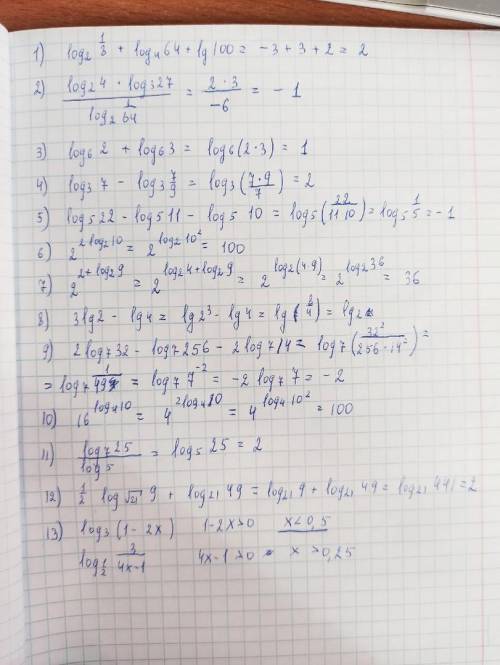 1) log₂ 1/3 + log₄ 64 + lg 100 = -3 + 3 + 2 = 2
2) (log₂ 4 · log₃ 27) / (log₂ 1/64) = (2 · 3) / -6 = - 1
3) log₆ 2 + log₆ 3 = log₆ (2·3) = 1
4) log₃ 7 - log₃ 7/9 = log₃ (7·9/7) = 2
5) log₅ 22 - log₅ 11 - log₅ 10 = log₅ (22/11·10) = log₅ 1/5 = -1
6) 2^(2log₂10) = 2^(log₂10²) = 100
7) 2^(2+log₂9) = 2^(log₂4+log₂9) = 2^(log₂(4·9)) = 2^(log₂36) = 36
8) 3lg2 - lg4 = lg2³ - lg4 = lg(8/4) = lg2
9) 2log₇32 - log₇256 - 2log₇14 = log₇ (32²/256·14²) =
= log₇ 1/49 = log₇ 7⁻² = -2 log₇ 7 = -2
10) 16^(log₄10) = 4^(2log₄10) = 4^(log₄10²) = 100
11) log₇25 / log 5 = log₅ 25 = 2
12) 1/2 log_√21 9 + log₂₁ 49 = log₂₁ 9 + log₂₁ 49 = log₂₁ 441 = 2
13) log₃ (1-2x) 1-2x>0 x<0,5
log_1/2 3/(4x-1) 4x-1>0 x>0,25